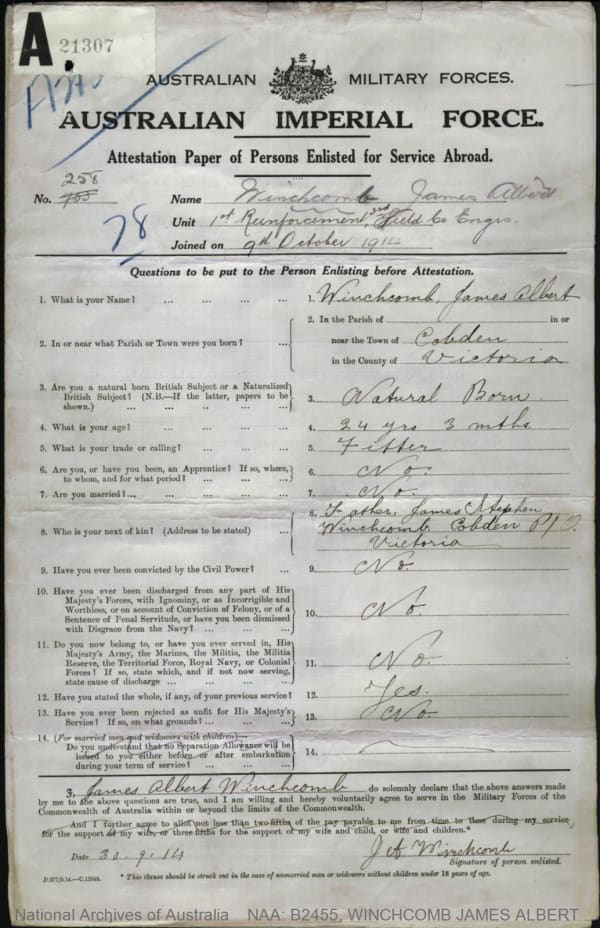 A 21307
AUSTRALIAN MILITARY FORCES.
AUSTRALIAN IMPERIAL FORCE.
Attestation Paper of Persons Enlisted for Service Abroad.
258
No. 405 Name Winchcomb James Albert
78
Unit 1st Reinforcement, 3rd Field Co Engrs.
Joined on 9th October 1914
Questions to be put to the Person Enlisting before Attestation.
1. What is your Name? ... ... ... ... 1. Winchcomb, James Albert
2. In or near what Parish or Town were you born? ... ... 2. In the Parish of in or
near the Town of Cobden
in the County of Victoria
3. Are you a natural born British Subject or a Naturalized
British Subject? (N.B.—If the latter, papers to be
shown.) ... ... ... ... 3. Natural Born.
4. What is your age? ... ... ... ... 4. 24 yrs 3 mths.
5. What is your trade or calling? ... ... ... 5. Fitter
6. Are you, or have you been, an Apprentice? If so, where,
to whom, and for what period? ... ... ... 6. No.
7. Are you married?... ... ... ... ... 7. No.
8. Who is your next of kin? (Address to be stated) ... 8. Father, James Stephen
Winchcomb Cobden P.O.
Victoria
9. Have you ever been convicted by the Civil Power? ... 9. No.
10. Have you ever been discharged from any part of His
Majesty's Forces, with Ignominy, or as Incorrigible and
Worthless, or on account of Conviction of Felony, or of a
Sentence of Penal Servitude, or have you been dismissed
with Disgrace from the Navy? ... ... ... 10. No.
11. Do you now belong to, or have you ever served in, His
Majesty's Army, the Marines, the Militia, the Militia
Reserve, the Territorial Force, Royal Navy, or Colonial
Forces? If so, state which, and if not now serving,
state cause of discharge ... ... ... ... 11. No.
12. Have you stated the whole, if any, of your previous service? 12. Yes.
13. Have you ever been rejected as unfit for His Majesty's
Service? If so, on what grounds? ... ... ... 13. No.
14. (For married men and widowers with children)—
Do you understand that no Separation Allowance will be
issued to you either before or after embarkation
during your term of service? ... ... ... 14.
I, James Albert Winchcomb do solemnly declare that the above answers made
by me to the above questions are true, and I am willing and hereby voluntarily agree to serve in the Military Forces of the
Commonwealth of Australia within or beyond the limits of the Commonwealth.
And I further agree to allot not less than two-fifths of the pay payable to me from time to time during my service
for the support of my wife, or three-fifths for the support of my wife and child, or wife and children.*
Date 30.9.14 J A Winchcomb
Signature of person enlisted.
* This clause should be struck out in the case of unmarried men or widowers without children under 18 years of age.
National Archives of Australia NAA: B2455, WINCHCOMB JAMES ALBERT